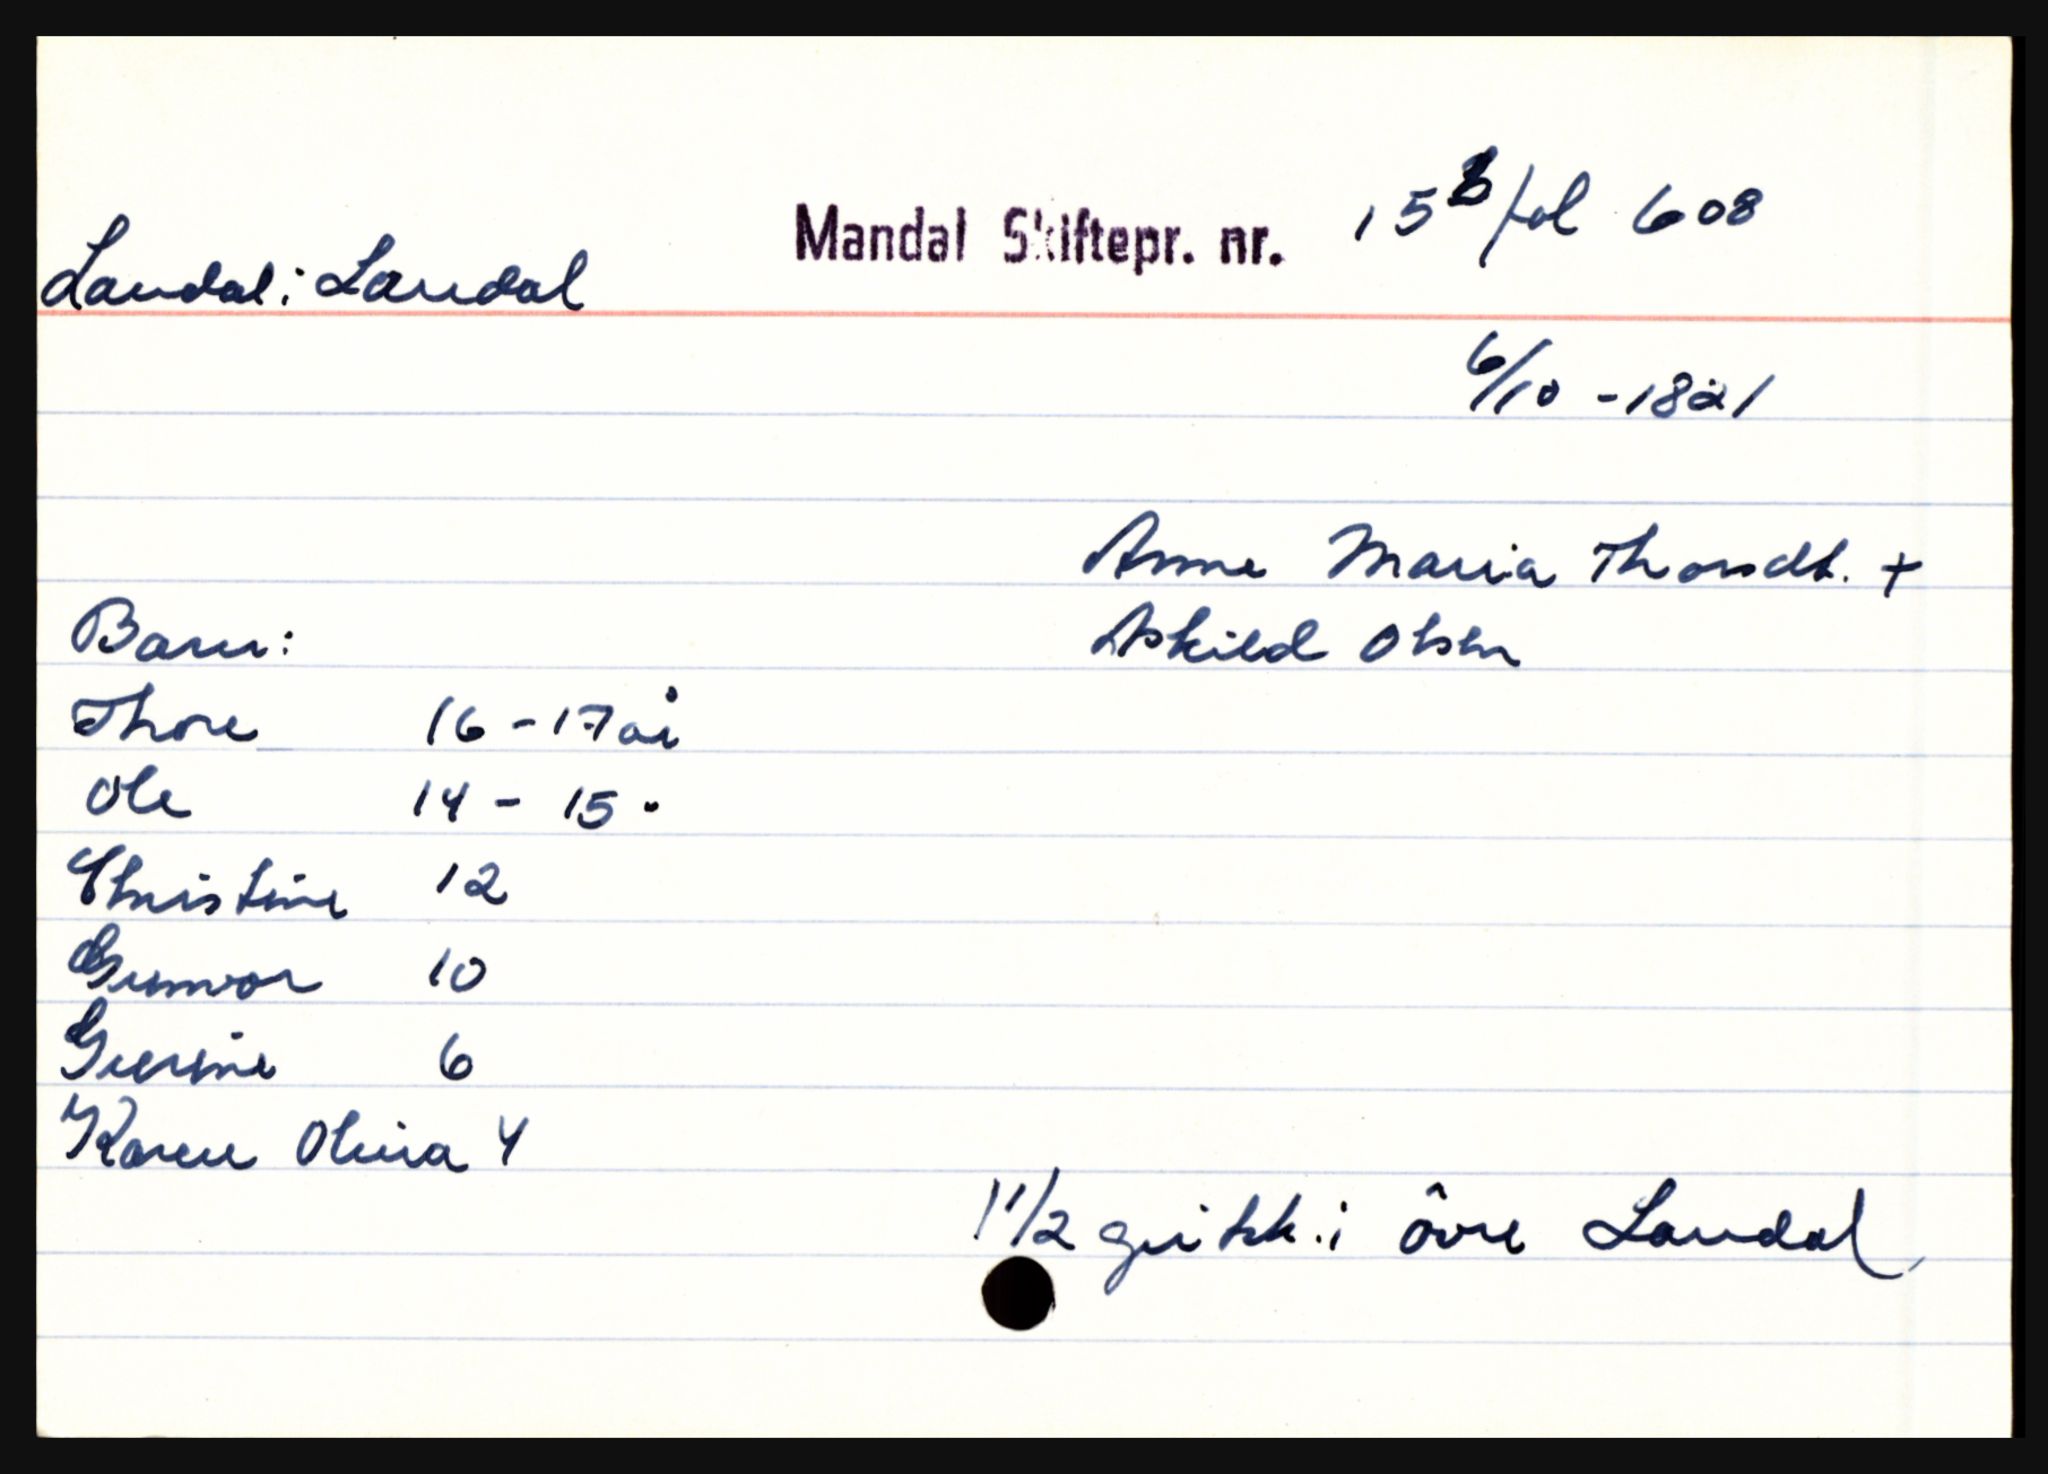 Mandal Skiftepr. nr. 15 B fol 608
Laudal i Laudal
6/10 - 1821
Anne Maria Thorsdt. +
Barn: Askild Olsen
Thore 16 - 17 år
Ole 14 - 15 "
Christine 12
Gunvor 10
6
Karen Olivia 4
1 1/2 i övre Laudal